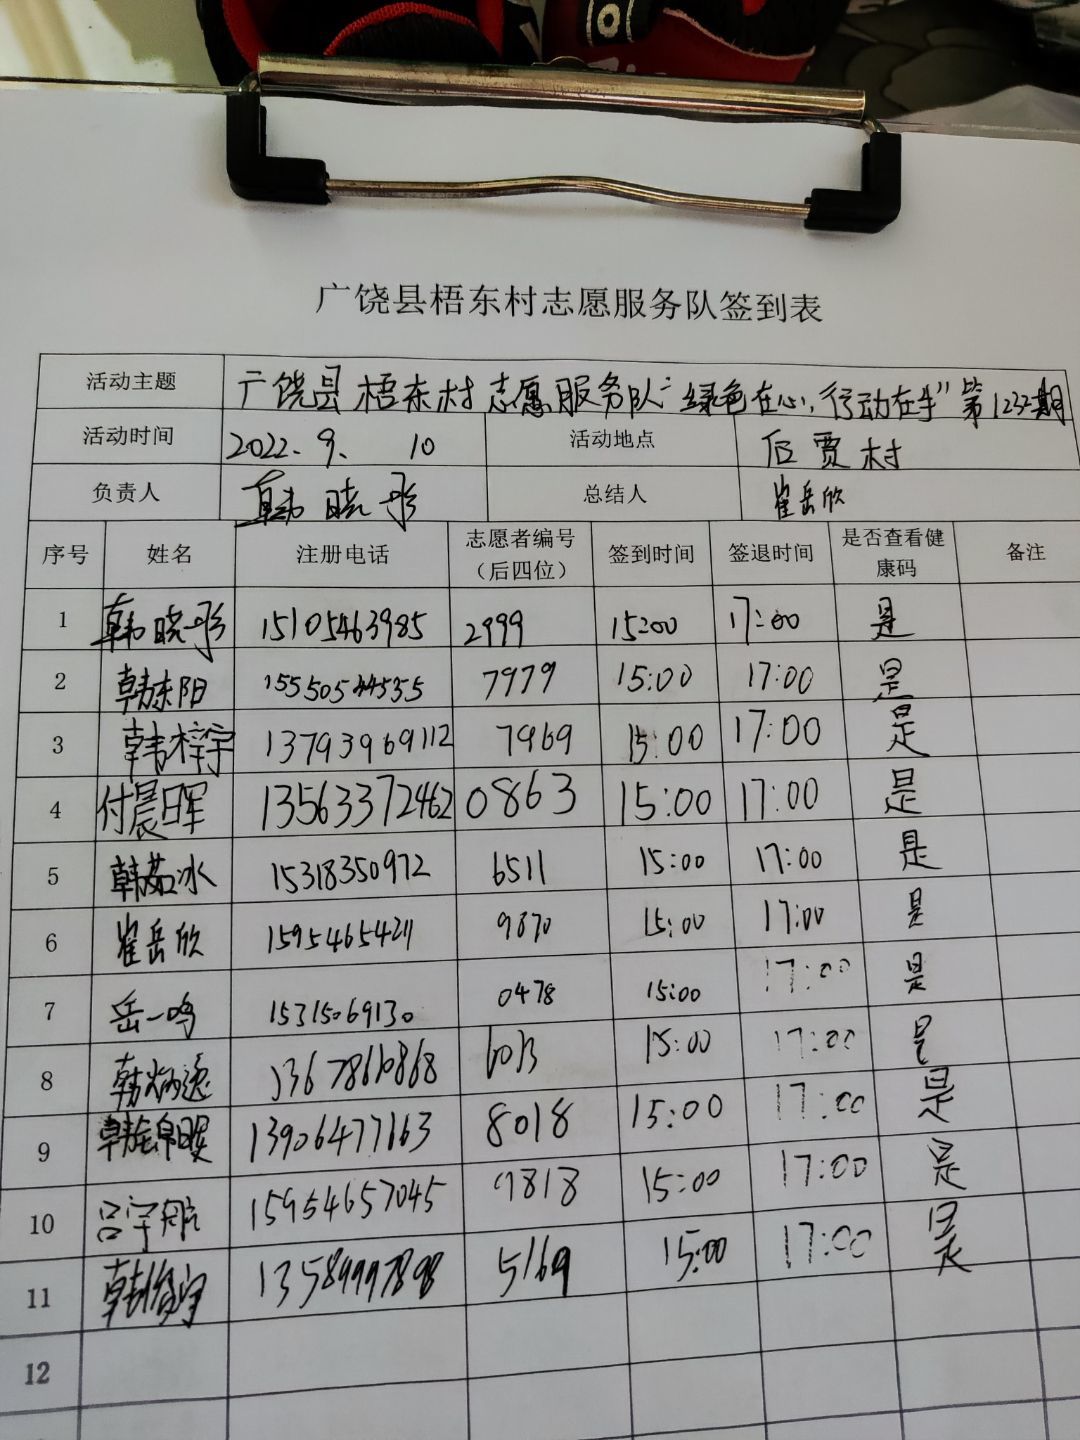 广饶县梧东村志愿服务队签到表
活动主题 广饶县梧东村志愿服务队“绿色在心,行动在手”第1232期
活动时间 2022.9. 10 活动地点 后贾村
负责人 韩晓彤 总结人 崔岳欣
序号 姓名 注册电话 志愿者编号（后四位） 签到时间 签退时间 是否查看健康码 备注
1 韩晓彤 15105463985 2999 15:00 17:00 是
2 韩东阳 7979 15:00 17:00 是
3 韩梓宇 13793969112 7969 15:00 17:00 是
4 付晨晖 13563372462 0863 15:00 17:00 是
5 韩茹冰 15318350972 6511 15:00 17:00 是
6 崔岳欣 15954654211 9870 15:00 17:00 是
7 岳一鸣 15315069130 0478 15:00 17:00 是
8 15:00 17:00 是
9 13906477163 8018 15:00 17:00 是
10 吕宇航 15954657045 9818 15:00 17:00 是
11 5169 15:00 17:00 是
12